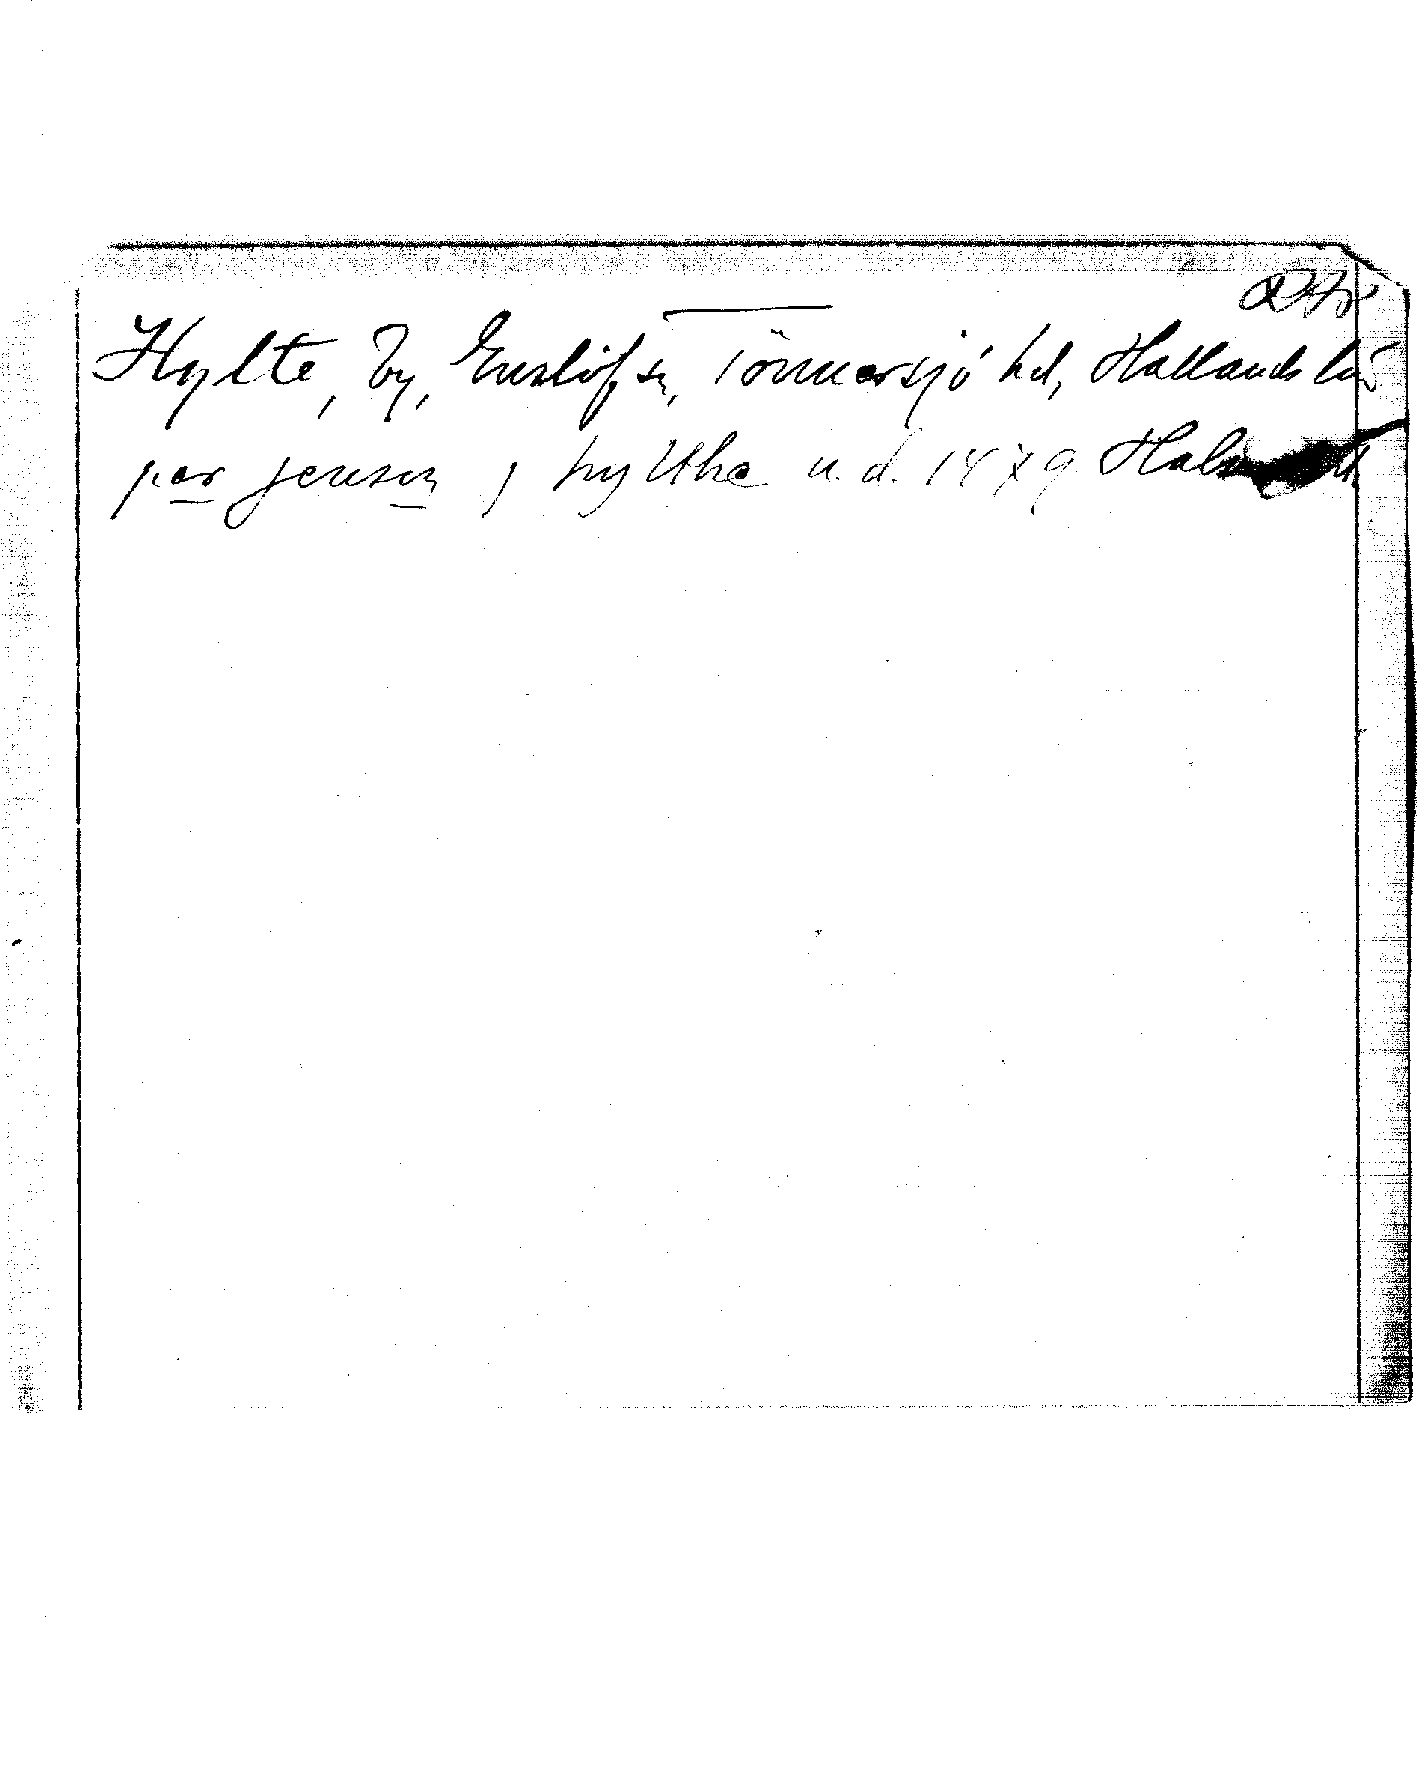 Hylte, by, Enslöfs sn, Tönnersjö hd, Hallands län
per jensen j hylthe u.d. 1479